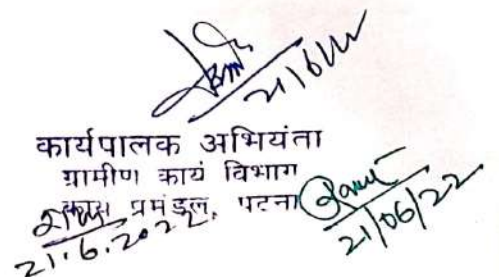 21/6/22
कार्यपालक अभियंता
ग्रामीण कार्य विभाग
प्रमंडल, पटना
21.6.2022.
21/06/22